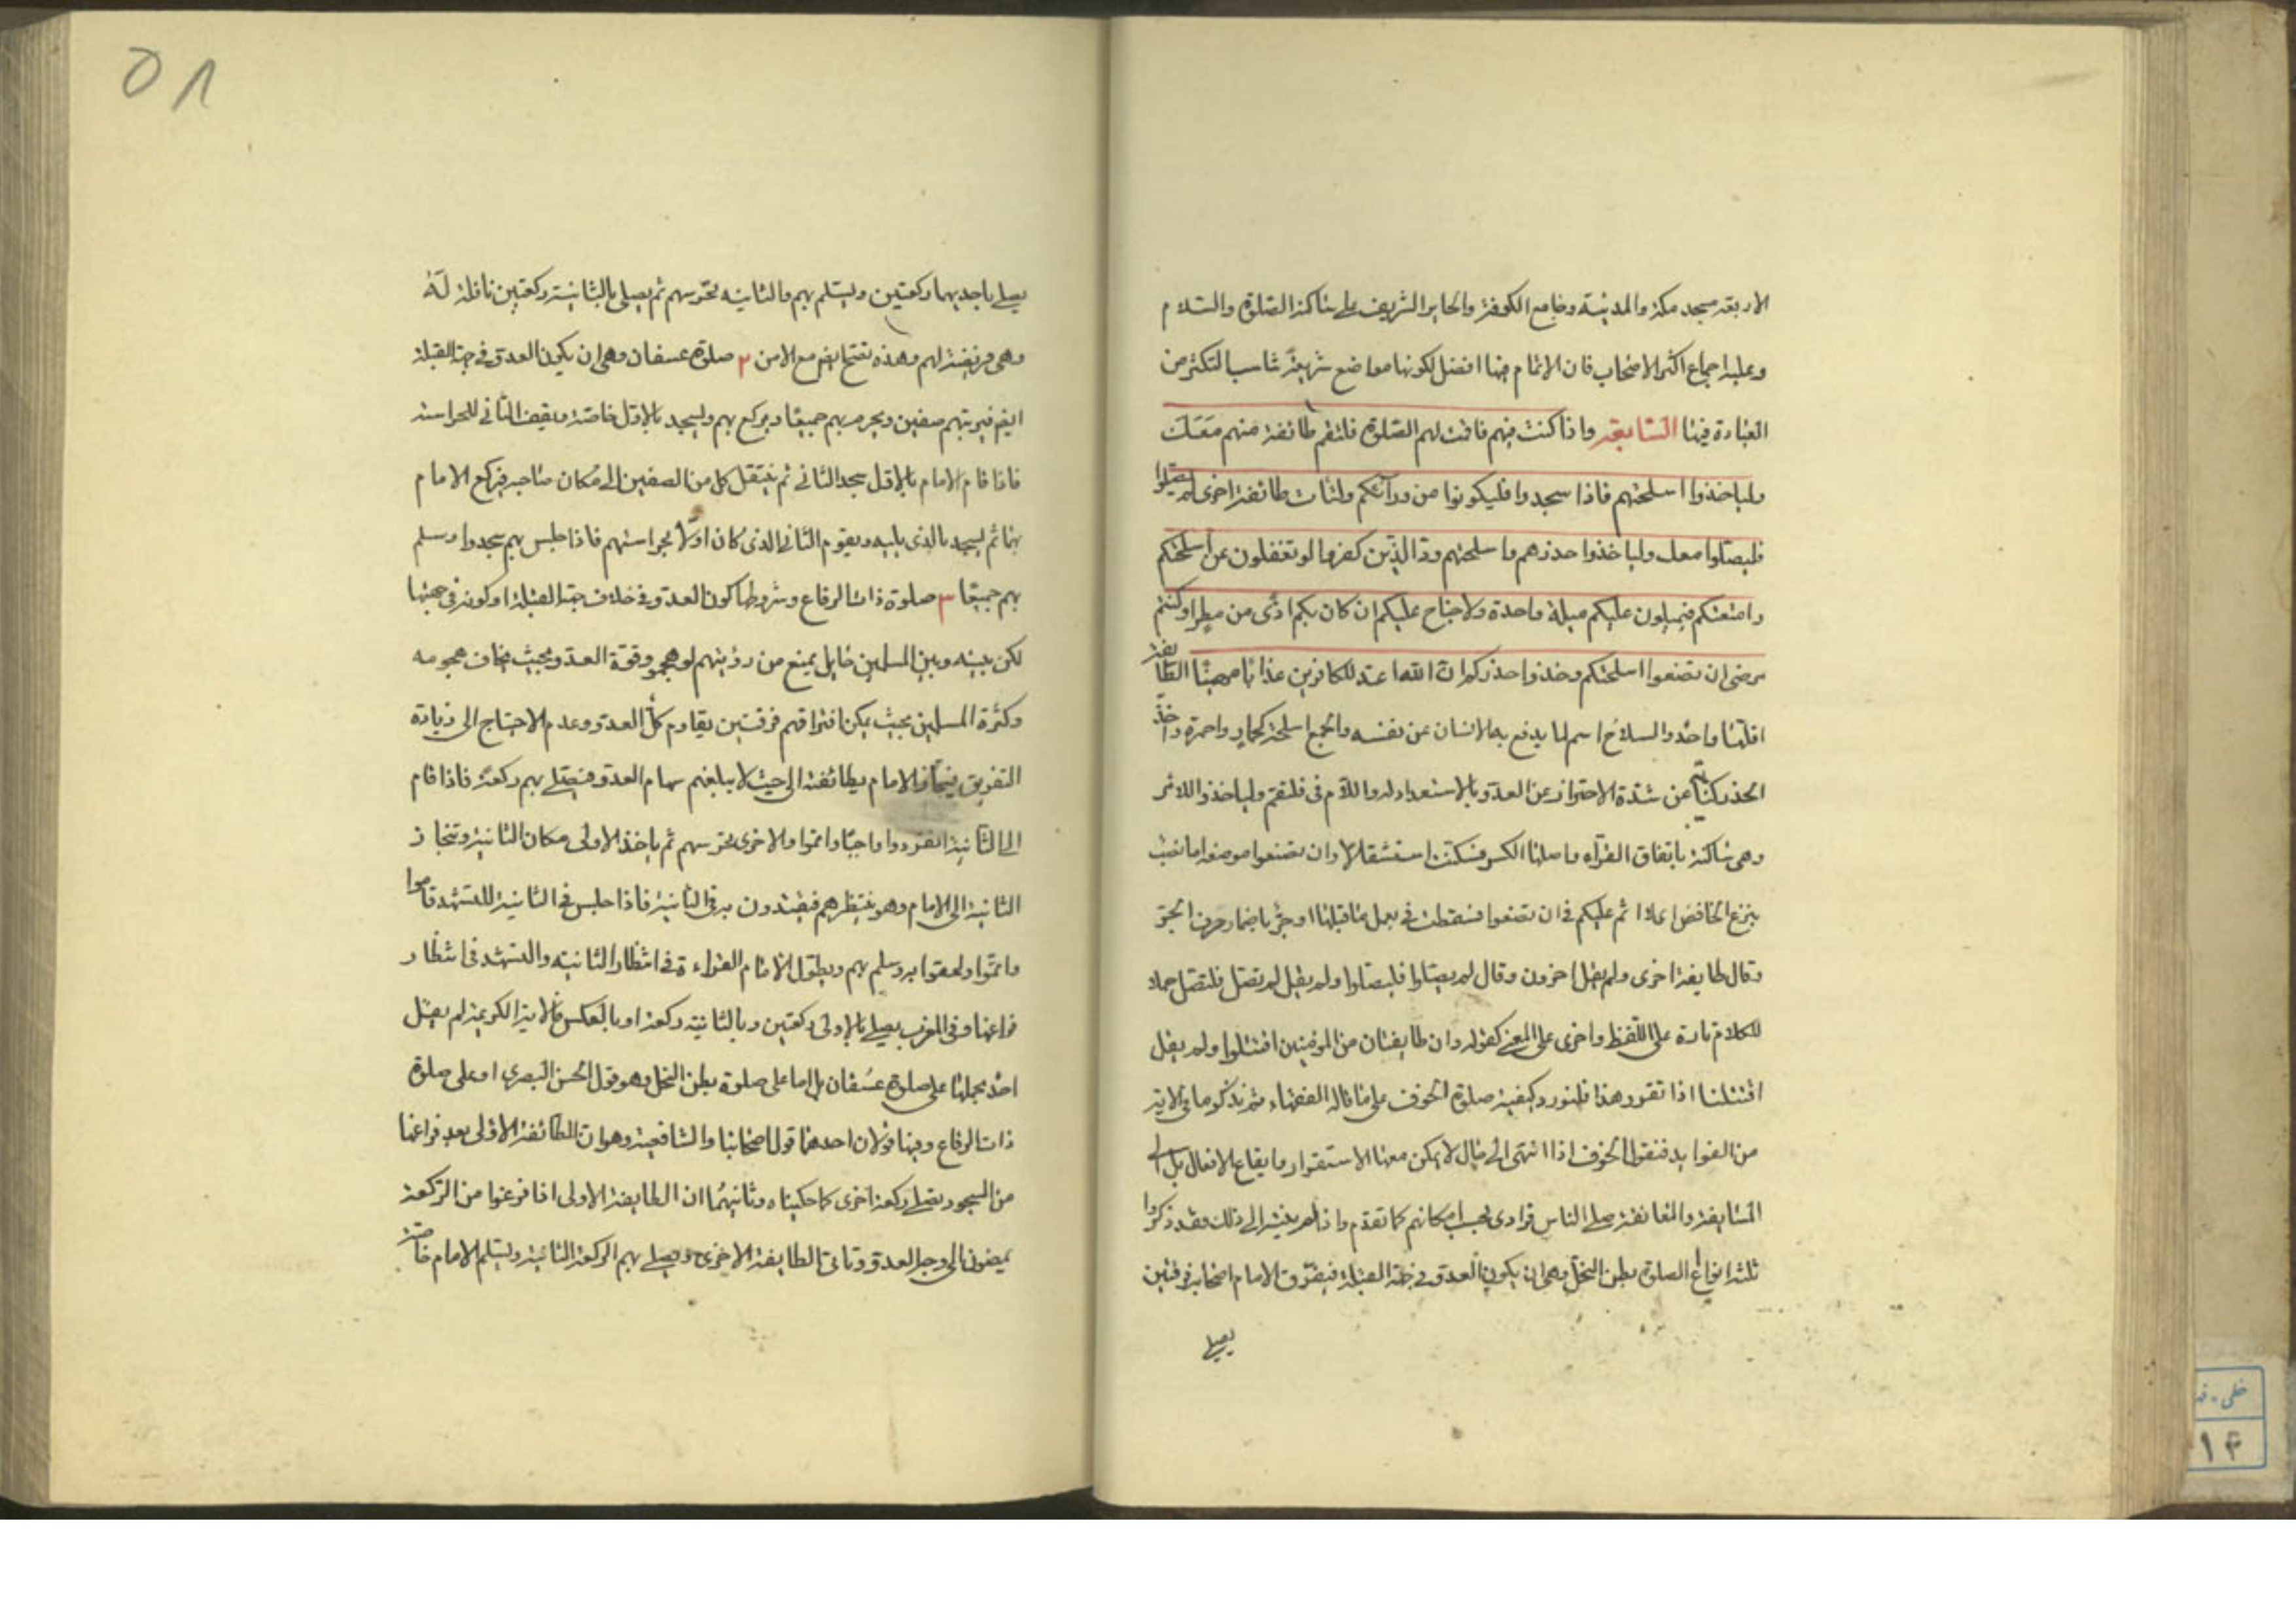 الاربعة مسجد مكة والمدينة وجامع الكوفة والحاير الشريف على ساكنه الصلوة والسلام
وعليه اجماع اكثر الاصحاب فان الاتمام فيها افضل لكونها مواضع شريفة تناسب التكثر من
العبادة فيها السابعة واذا كنت فيهم فاقمت لهم الصلوة فلتقم طائفة منهم معك
ولياخذوا اسلحتهم فاذا سجدوا فليكونوا من ورائكم ولتات طائفة اخرى لم يصلوا
فليصلوا معك ولياخذوا حذرهم واسلحتهم ود الذين كفروا لو تغفلون عن اسلحتكم
وامتعتكم فيميلون عليكم ميلة واحدة ولا جناح عليكم ان كان بكم اذى من مطر او كنتم
مرضى ان تضعوا اسلحتكم وخذوا حذركم ان الله اعد للكافرين عذابا مهينا الطائفة
اقلها واحد والسلاح اسم لما يدفع به الانسان عن نفسه والجمع اسلحة كحمار واحمرة واخذ
الحذر كناية عن شدة الاحتراز عن العدو بالاستعداد له واللام في فلتقم ولياخذوا للامر
وهي ساكنة باتفاق القراء واصلها الكسر فسكنت استثقالا وان تضعوا موضعه اما نصب
بنزع الخافض اي لا اثم عليكم في ان تضعوا فسقطت في بعمل ما قبلها او جر باضمار حرف الجر
وقال طايفة اخرى ولم يقل اخرون وقال لم يصلوا فليصلوا ولم يقل لم تصل فلتصل حملا
للكلام تارة على اللفظ واخرى على المعنى كقوله وان طايفتان من المومنين اقتتلوا ولم يقل
اقتتلتا اذا تقرر هذا فلنورد كيفية صلوة الخوف على ما قاله الفقهاء ثم نذكر ما في الاية
من الفوايد فنقول الخوف اذا انتهى الى حال لا يمكن معها الاستقرار وايقاع الافعال بل الى
المسايفة والمعانقة صلى الناس فرادى بحسب امكانهم كما تقدم واذا لم ينته الى ذلك فقد ذكروا
ثلثة انواع الصلوة بطن النخل وهي ان يكون العدو في جهة القبلة فيفرق الامام اصحابه فرقتين
يصلي
٥٨
يصلي باحديهما ركعتين ويسلم بهم والثانية تحرسهم ثم يصلي بالثانية ركعتين نافلة له
وهي فريضة لهم وهذه تصح ايضا مع الامن ٢ صلوة عسفان وهي ان يكون العدو في جهة القبلة
ايضا فيرتبهم صفين ويحرم بهم جميعا ويركع بهم ويسجد بالاول خاصة ويقف الثاني للحراسة
فاذا قام الامام بالاول سجد الثاني ثم ينتقل كل من الصفين الى مكان صاحبه فيركع الامام
بهما ثم يسجد بالذي يليه ويقوم الثاني الذي كان اولا بحراستهم فاذا جلس بهم سجدوا وسلم
بهم جميعا ٣ صلوة ذات الرقاع وشروطها كون العدو في خلاف جهة القبلة او كونه في جهتها
لكن بينه وبين المسلمين حايل يمنع من رؤيتهم لو هجموا وقوة العدو بحيث يخاف هجومه
وكثرة المسلمين بحيث يمكن افتراقهم فرقتين يقاوم كل العدو وعدم الاحتياج الى زيادة
التفريق فينحاز الامام بطائفة الى حيث لا يبلغهم سهام العدو فيصلي بهم ركعة فاذا قام
الى الثانية انفردوا واجبا واتموا والاخرى تحرسهم ثم ياخذ الاولى مكان الثانية وتنحاز
الثانية الى الامام وهو ينتظرهم فيقتدون به في الثانية فاذا جلس في الثانية للتشهد قاموا
واتموا ولحقوا به وسلم بهم ويطول الامام القراءة في انتظار الثانية والتشهد في انتظار
فراغها وفي المغرب يصلي بالاولى ركعتين وبالثانية ركعة او بالعكس فالاية الكريمة لم يقل
احد بحملها على صلوة عسفان بل اما على صلوة بطن النخل وهو قول الحسن البصري او على صلوة
ذات الرقاع وفيها قولان احدهما قول اصحابنا والشافعية وهو ان الطائفة الاولى بعد فراغها
من السجود يصلي ركعة اخرى كما حكيناه وثانيهما ان الطايفة الاولى اذا فرغوا من الركعة
يمضون الى وجه العدو وتاتي الطايفة الاخرى ويصلي بهم الركعة الثانية ويسلم الامام خاصة